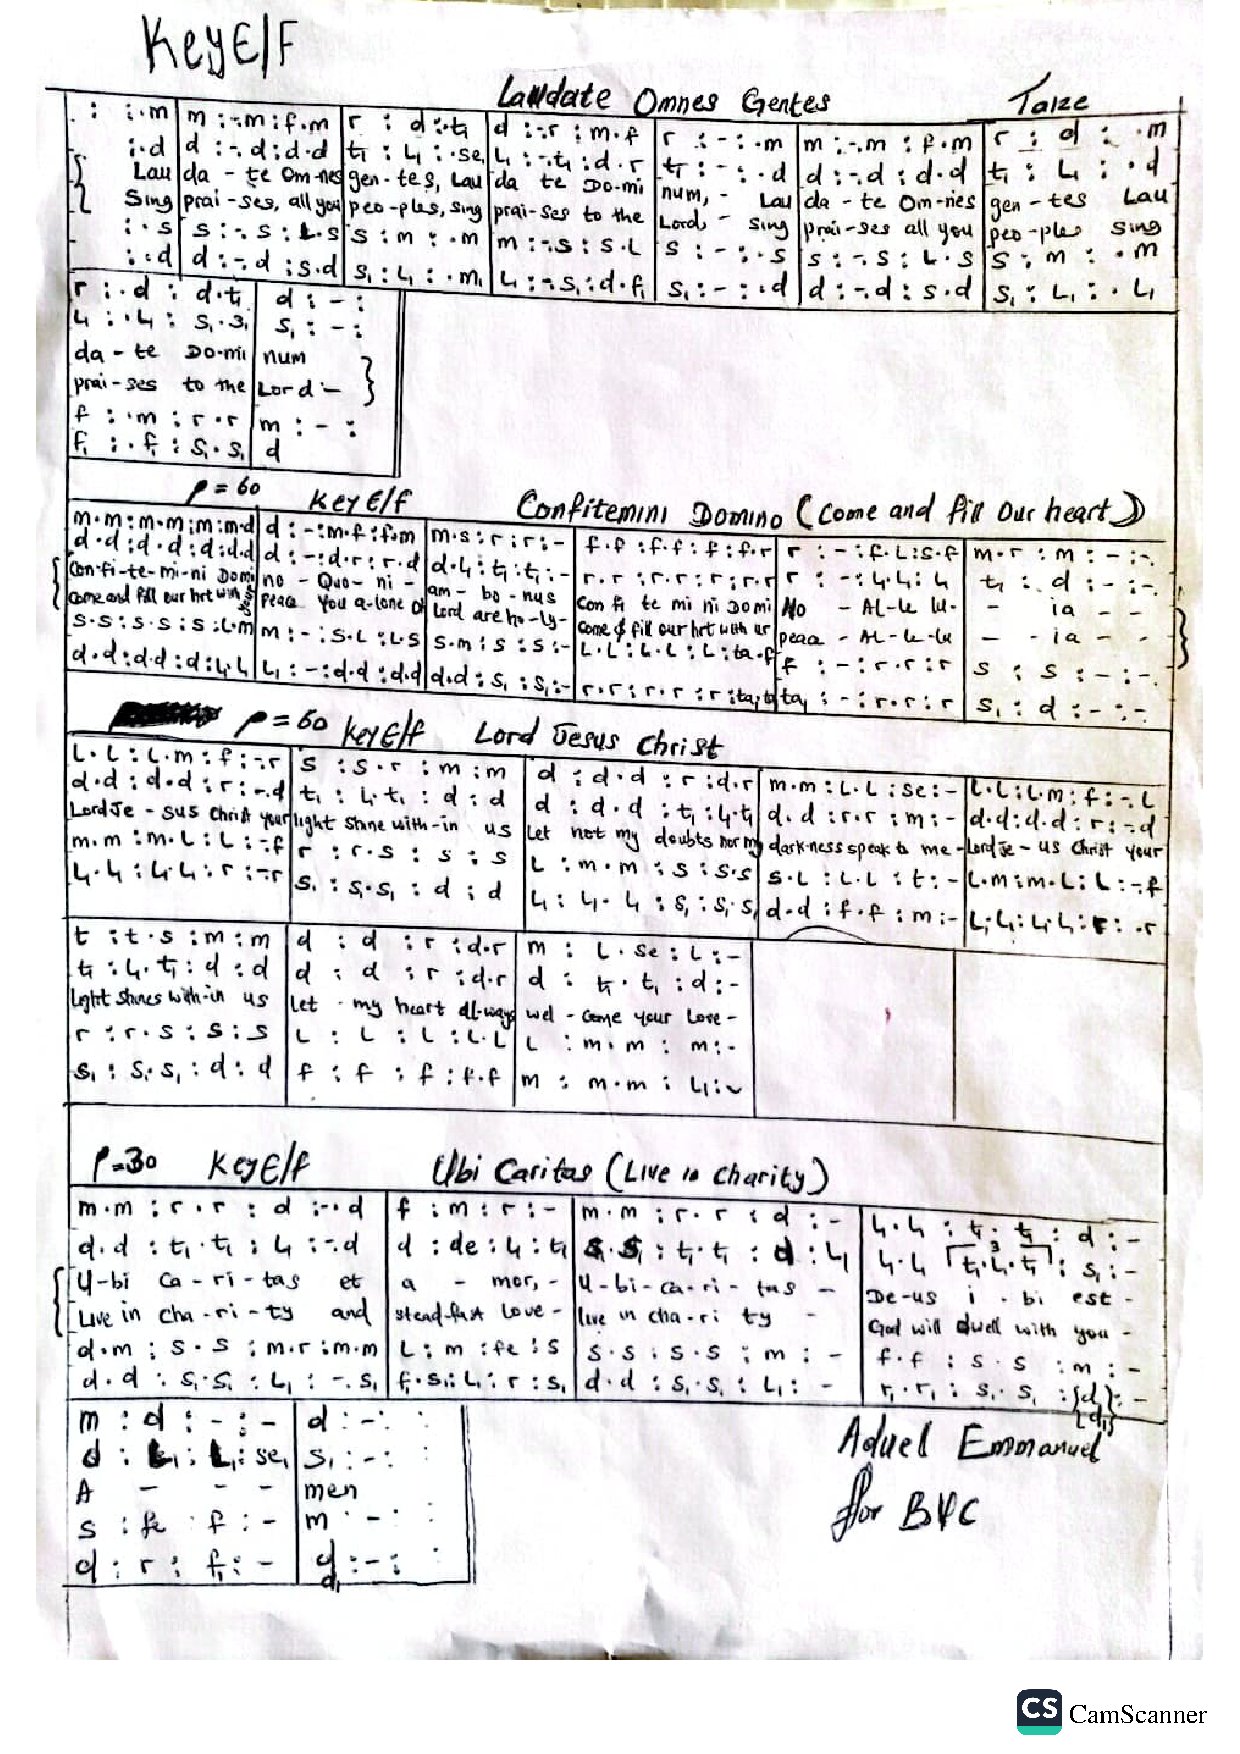 Key E/F
Laudate Omnes Gentes Taize
: :.m | m :-.m : f.m | r : d :.t₁ | d :-.r : m.f | r : - : .m | m :-.m : f.m | r : d : .m
:.d | d :-.d : d.d | t₁ : l₁ : .se₁ | l₁ :-.t₁ : d.r | t₁ : - : .d | d :-.d : d.d | t₁ : l₁ : .d
Lau | da - te Om-nes | gen-tes, Lau | da te Do-mi | num, - Lau | da - te Om-nes | gen-tes Lau
Sing | prai-ses, all you | peo-ples, sing | prai-ses to the | Lord, - sing | prai-ses all you | peo-ples sing
:.s | s :-.s : L.s | s : m : .m | m :-.s : s.L | s : - : .s | s :-.s : L.s | s : m : .m
:.d | d :-.d : s.d | s₁ : L₁ : .m₁ | L₁ :-.s₁ : d.f₁ | s₁ : - : .d | d :-.d : s.d | s₁ : L₁ : .L₁
r :.d : d.t₁ | d : - :
L₁ :.L₁ : s₁.s₁ | s₁ : - :
da - te Do-mi | num
prai-ses to the | Lord :-
f :.m : r.r | m : - :
f₁ :.f₁ : s₁.s₁ | d
P = 60 Key E/f Confitemini Domino (Come and fill our heart)
m.m : m.m : m : m.d | d :- : m.f : f.m | m.s : r : r :- | f.f : f.f : f : f.r | r : - : f.L : s.f | m.r : m : - :-
d.d : d.d : d : d.d | d :- : d.r : r.d | d.L₁ : t₁ : t₁ :- | r.r : r.r : r : r.r | r : - : L₁.L₁ : L₁ | t₁ : d : - :-
Con-fi-te-mi-ni Domi | no - Quo-ni - | am - bo-nus | Con fi te mi ni Domi | No - AL-le lu- | - ia - -
Come and fill our hrt with ur | peace You a-lone o | Lord are ho-ly- | Come & fill our hrt with ur | peace - AL-le-lu | - - ia - -
s.s : s.s : s : L.m | m :- : s.L : L.s | s.m : s : s :- | L.L : L.L : L : ta.f | f : - : r.r : r | s : s : - :-
d.d : d.d : d : L₁.L₁ | L₁ :- : d.d : d.d | d.d : s₁ : s₁ :- | r.r : r.r : r : ta₁.ta₁ | ta₁ : - : r.r : r | s₁ : d : - :-
P = 60 Key E/f Lord Jesus Christ
L.L : L.m : f :-.r | s : s.r : m : m | d : d.d : r : d.r | m.m : L.L : se :- | L.L : L.m : f :-.L
d.d : d.d : r :-.d | t₁ : L₁.t₁ : d : d | d : d.d : t₁ : L₁.t₁ | d.d : r.r : m :- | d.d : d.d : r :-.d
Lord Je - sus Christ your | light shine with-in us | Let not my doubts nor my | dark-ness speak to me- | Lord Je - us Christ your
m.m : m.L : L :-.f | r : r.s : s : s | L : m.m : s : s.s | s.L : L.L : t :- | L.m : m.L : L :-.f
L₁.L₁ : L₁.L₁ : r :-.r | s₁ : s₁.s₁ : d : d | L₁ : L₁.L₁ : s₁ : s₁.s₁ | d.d : f.f : m :- | L₁.L₁ : L₁.L₁ : r : .r
t : t.s : m : m | d : d : r : d.r | m : L.se : L :-
t₁ : L₁.t₁ : d : d | d : d : r : d.r | d : t₁.t₁ : d :-
Light shines with-in us | Let - my heart al-ways | wel-come your Love-
r : r.s : s : s | L : L : L : L.L | L : m.m : m :-
s₁ : s₁.s₁ : d : d | f : f : f : f.f | m : m.m : L₁ :-
P=30 Key E/f Ubi Caritas (Live in charity)
m.m : r.r : d :-.d | f : m : r :- | m.m : r.r : d : - | L₁.L₁ : t₁.t₁ : d :-
d.d : t₁.t₁ : L₁ :-.d | d : de : L₁ : t₁ | s₁.s₁ : t₁.t₁ : d : L₁ | L₁.L₁ 3 t₁.L₁.t₁ : s₁ :-
U-bi Ca-ri-tas et | a - mor, - | U-bi-ca-ri-tas - | De-us i-bi est -
Live in cha-ri-ty and | stead-fast Love - | live in cha-ri ty - | God will dwell with you -
d.m : s.s : m.r : m.m | L : m : fe : s | s.s : s.s : m : - | f.f : s.s : m : -
d.d : s₁.s₁ : L₁ : -.s₁ | f₁.s₁ : L₁ : r : s₁ | d.d : s₁.s₁ : L₁ : - | r₁.r₁ : s₁.s₁ : {d d₁} : -
m : d : - : - | d : - :
d : L₁ : L₁ : se₁ | s₁ : - :
A - - - | men
s : fe : f : - | m : - :
d : r : f₁ : - | d d₁ : - :
Aduel Emmanuel
for BYC
CS CamScanner